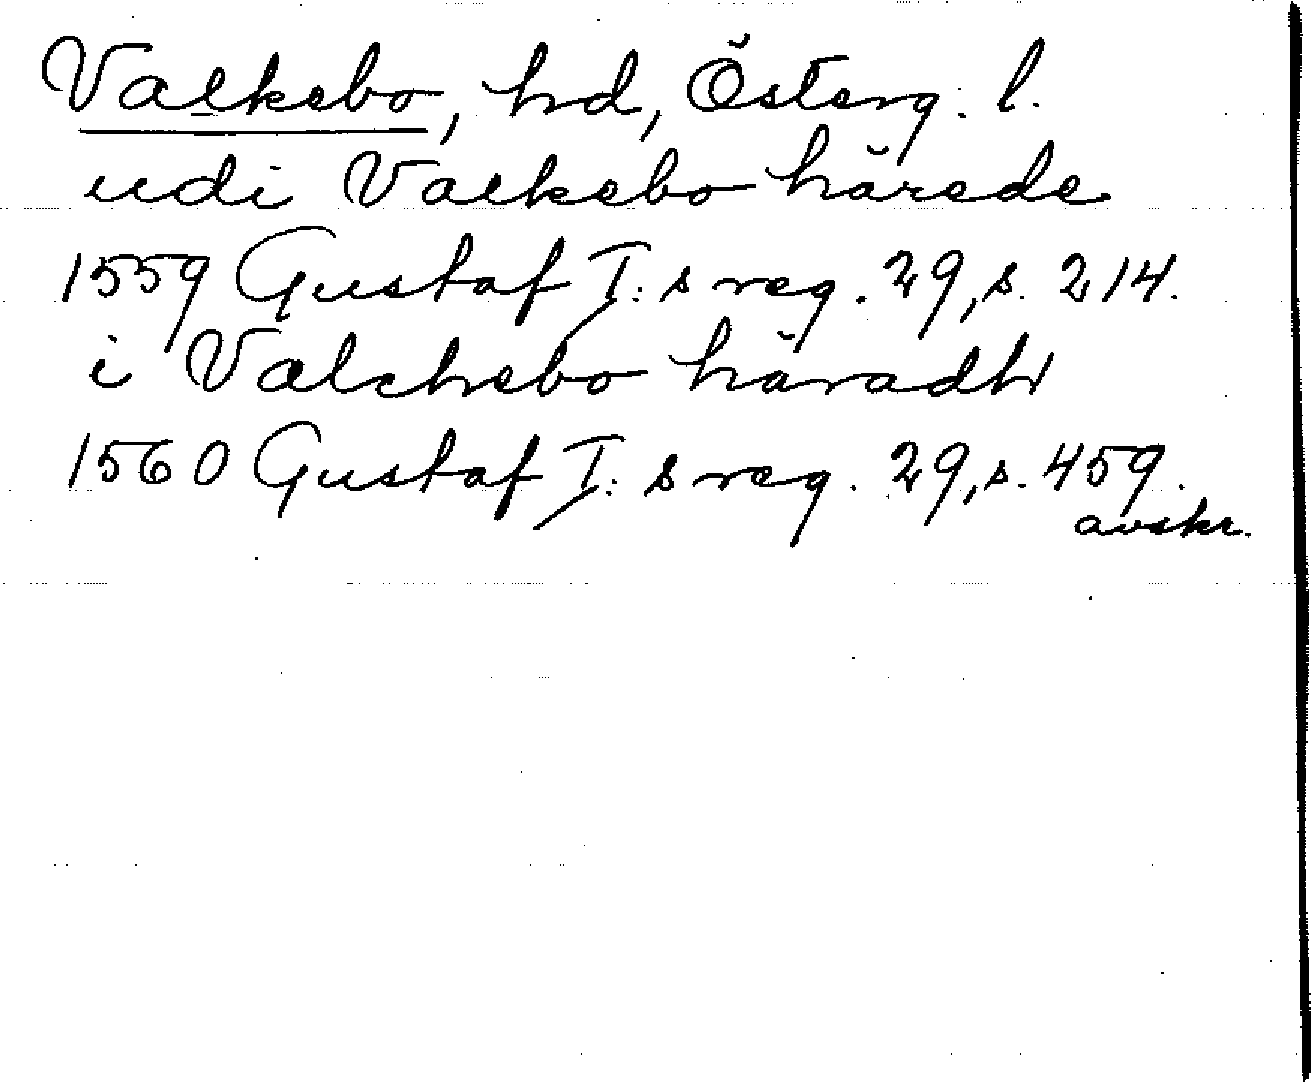 Valkebo, hd, Österg. l.
udi Valkebo härede
1559 Gustaf I: s reg. 29, s. 214.
i Valchebo häradh
1560 Gustaf I: s reg. 29, s. 459.
avskr.